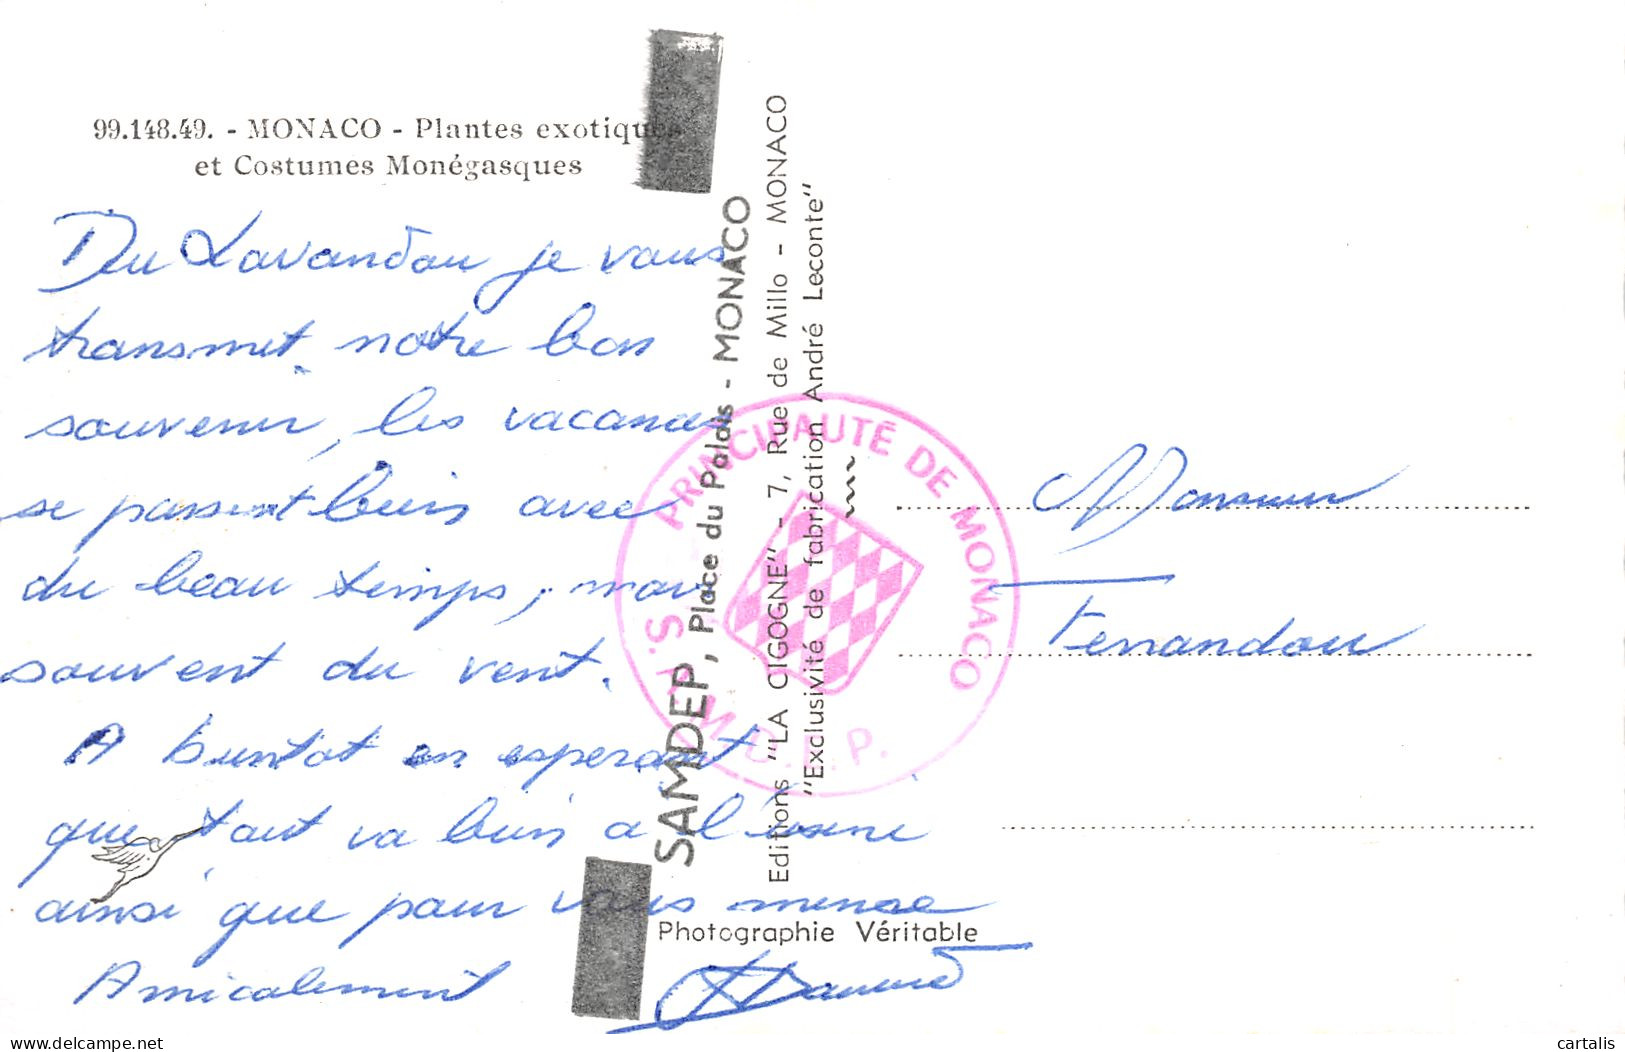 99.148.49. - MONACO - Plantes exotiques
et Costumes Monégasques
Du Lavandou je vous
transmet notre bon
souvenir, les vacances
se passent bien avec
du beau temps, mais
souvent du vent.
A bientot en esperant
que tout va bien a l'usine
ainsi que pour vous meme
Amicalement
SAMDEP, Place du Palais - MONACO
Editions "LA CIGOGNE" - 7, Rue de Millo - MONACO
"Exclusivité de fabrication André Leconte"
PRINCIPAUTÉ DE MONACO
Photographie Véritable
Monsieur
Ferrandou
delcampe.net
cartalis